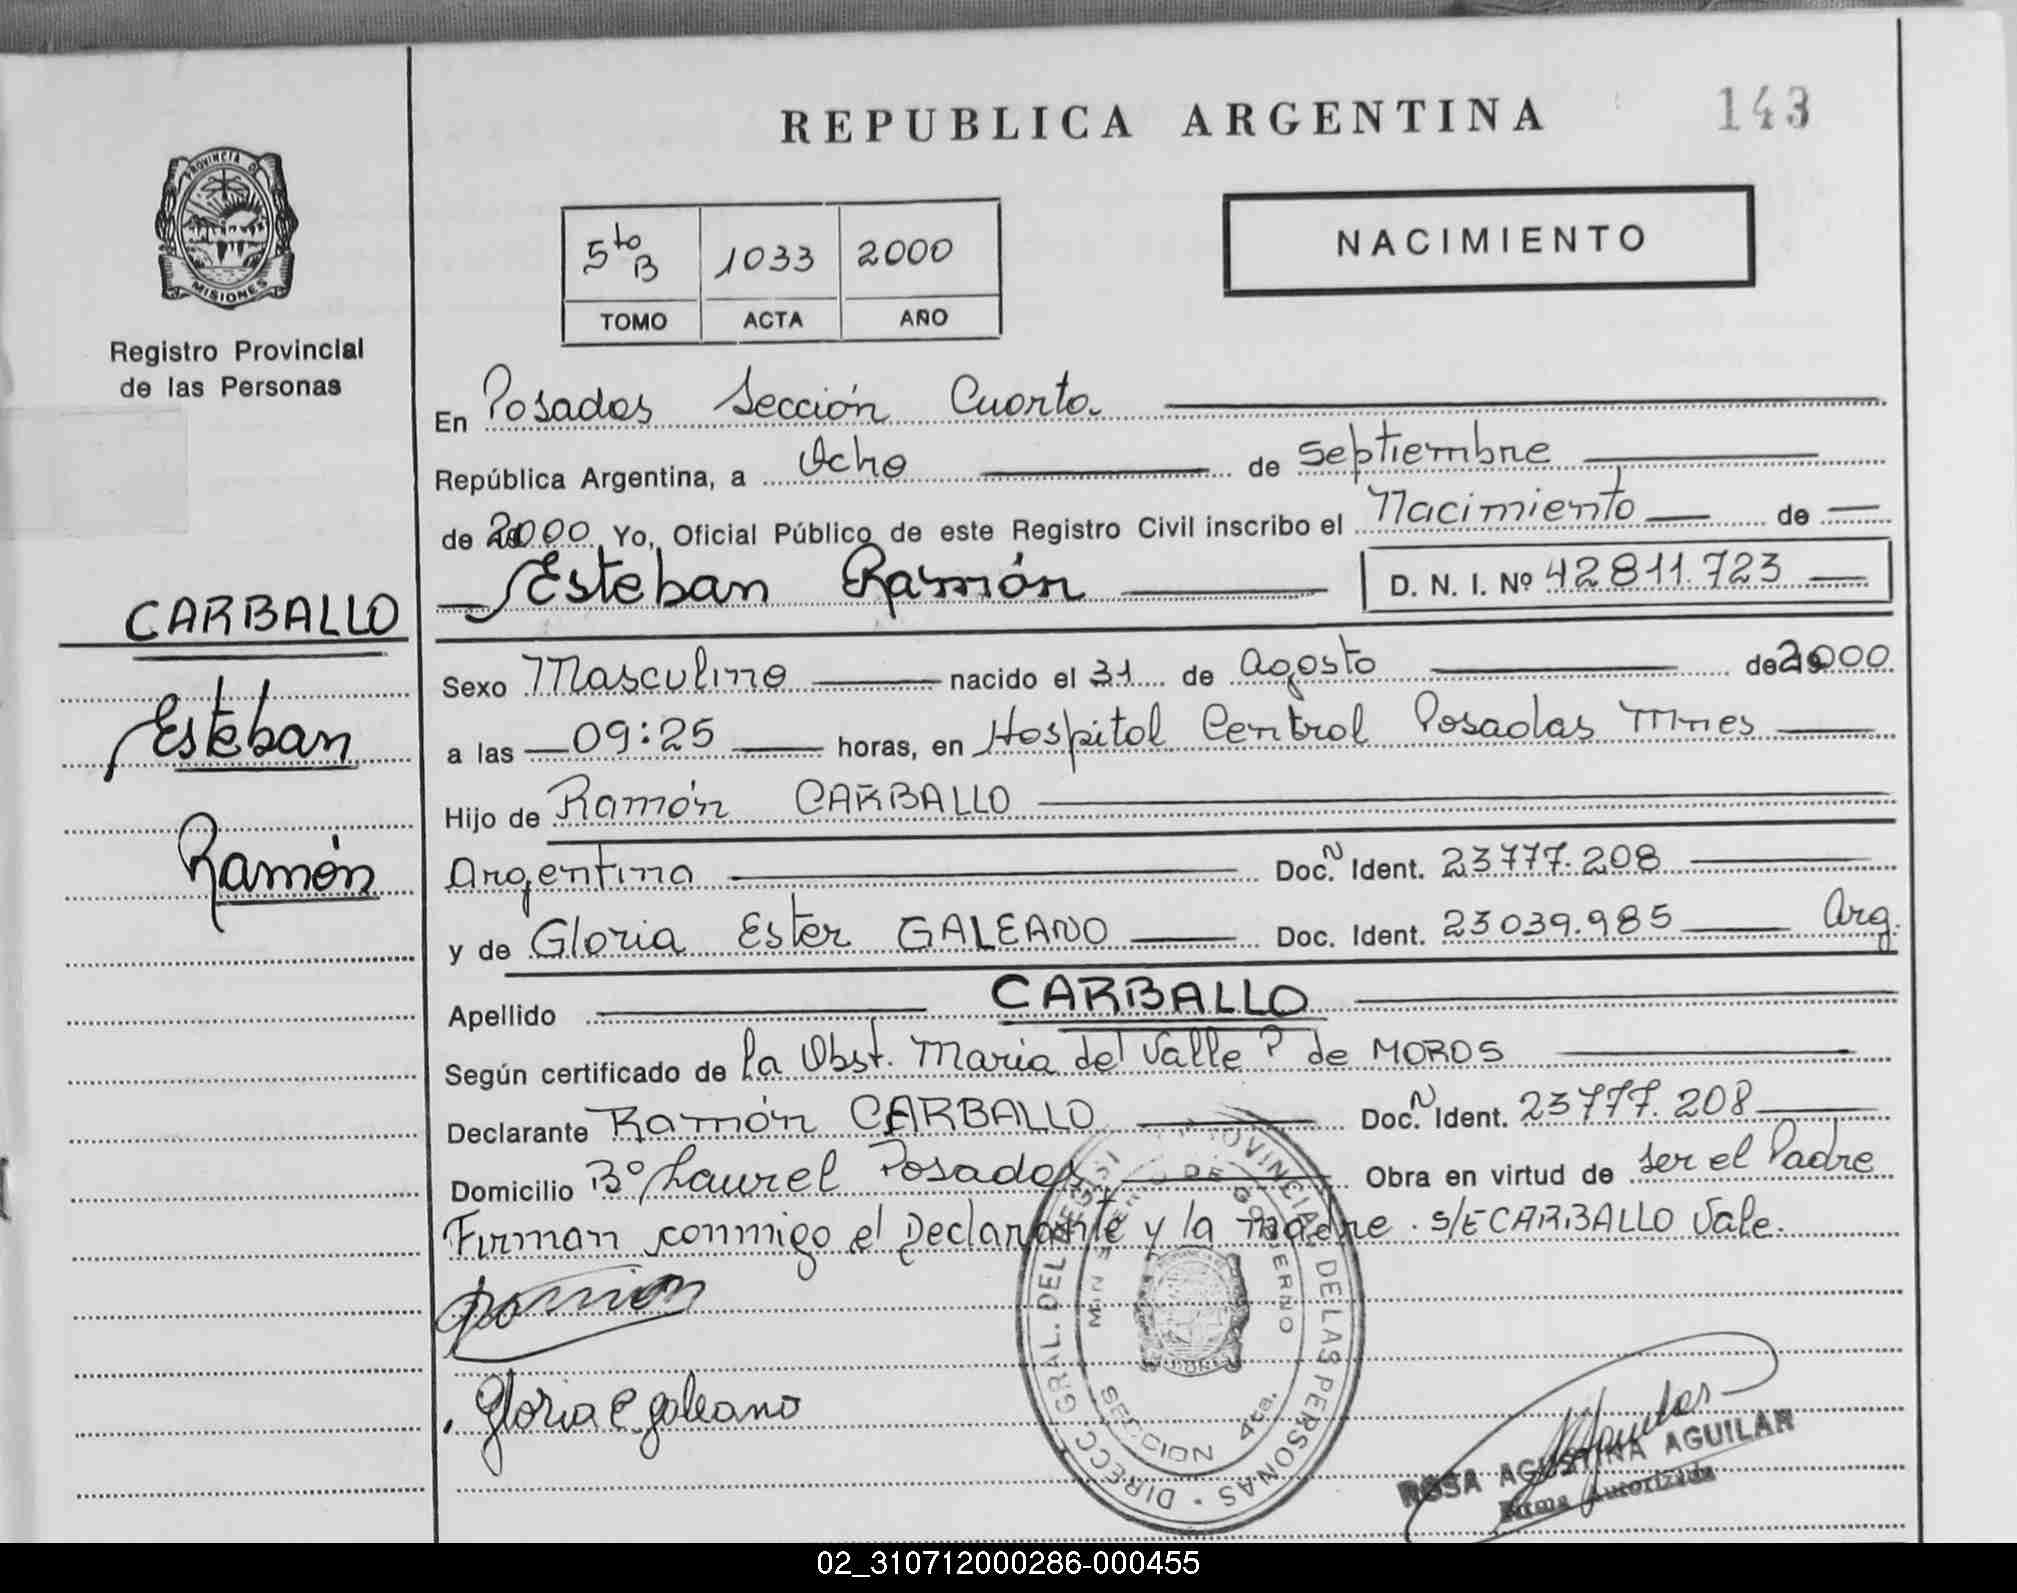 REPUBLICA ARGENTINA
143
PROVINCIA DE
MISIONES
Registro Provincial
de las Personas
5to B 1033 2000
TOMO ACTA AÑO
NACIMIENTO
En Posadas Sección Cuarta
República Argentina, a Ocho de Septiembre
de 2000 Yo, Oficial Público de este Registro Civil inscribo el Nacimiento de
Esteban Ramón D. N. I. Nº 42811.723
CARBALLO
Esteban
Ramón
Sexo Masculino nacido el 31 de Agosto de 2000
a las 09:25 horas, en Hospital Central Posadas Mnes
Hijo de Ramón CARBALLO
Argentina Doc. N Ident. 23777.208
y de Gloria Ester GALEANO Doc. Ident. 23039.985 Arg.
Apellido CARBALLO
Según certificado de la Obst. Maria del Valle P de MOROS
Declarante Ramón CARBALLO Doc. N Ident. 23777.208
Domicilio Bº Laurel Posadas Obra en virtud de ser el Padre
Firman conmigo el Declarante y la madre. S/E CARBALLO Vale.
Gloria E galeano
DIRECC. GRAL. DEL REG. PROVINCIAL DE LAS PERSONAS
MINISTERIO DE GOBIERNO
SECCION 4ta.
ROSA AGUSTINA AGUILAR
Firma Autorizada
02_310712000286-000455